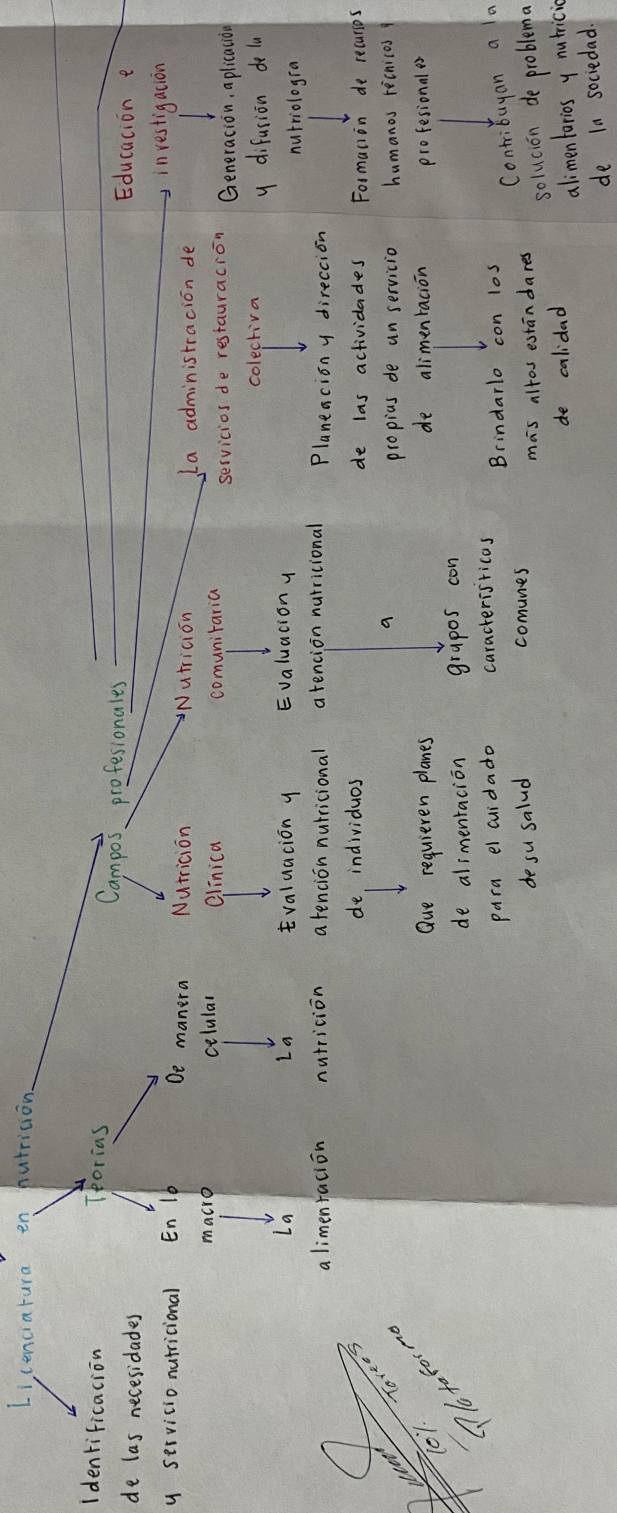 Licenciatura en nutrición
Identificación
de las necesidades
y servicio nutricional
Teorías
En lo
macro
La
alimentación
De manera
celular
La
nutrición
Campos profesionales
Nutrición
Clínica
Evaluación y
atención nutricional
de individuos
Que requieren planes
de alimentación
para el cuidado
de su salud
Nutrición
comunitaria
Evaluación y
atención nutricional
a
grupos con
características
comunes
La administración de
servicios de restauración
colectiva
Planeación y dirección
de las actividades
propias de un servicio
de alimentación
Brindarlo con los
más altos estándares
de calidad
Educación e
investigación
Generación, aplicación
y difusión de la
nutriología
Formación de recursos
humanos técnicos y
profesionales
Contribuyan a la
solución de problema
alimentarios y nutricio
de la sociedad.
10%